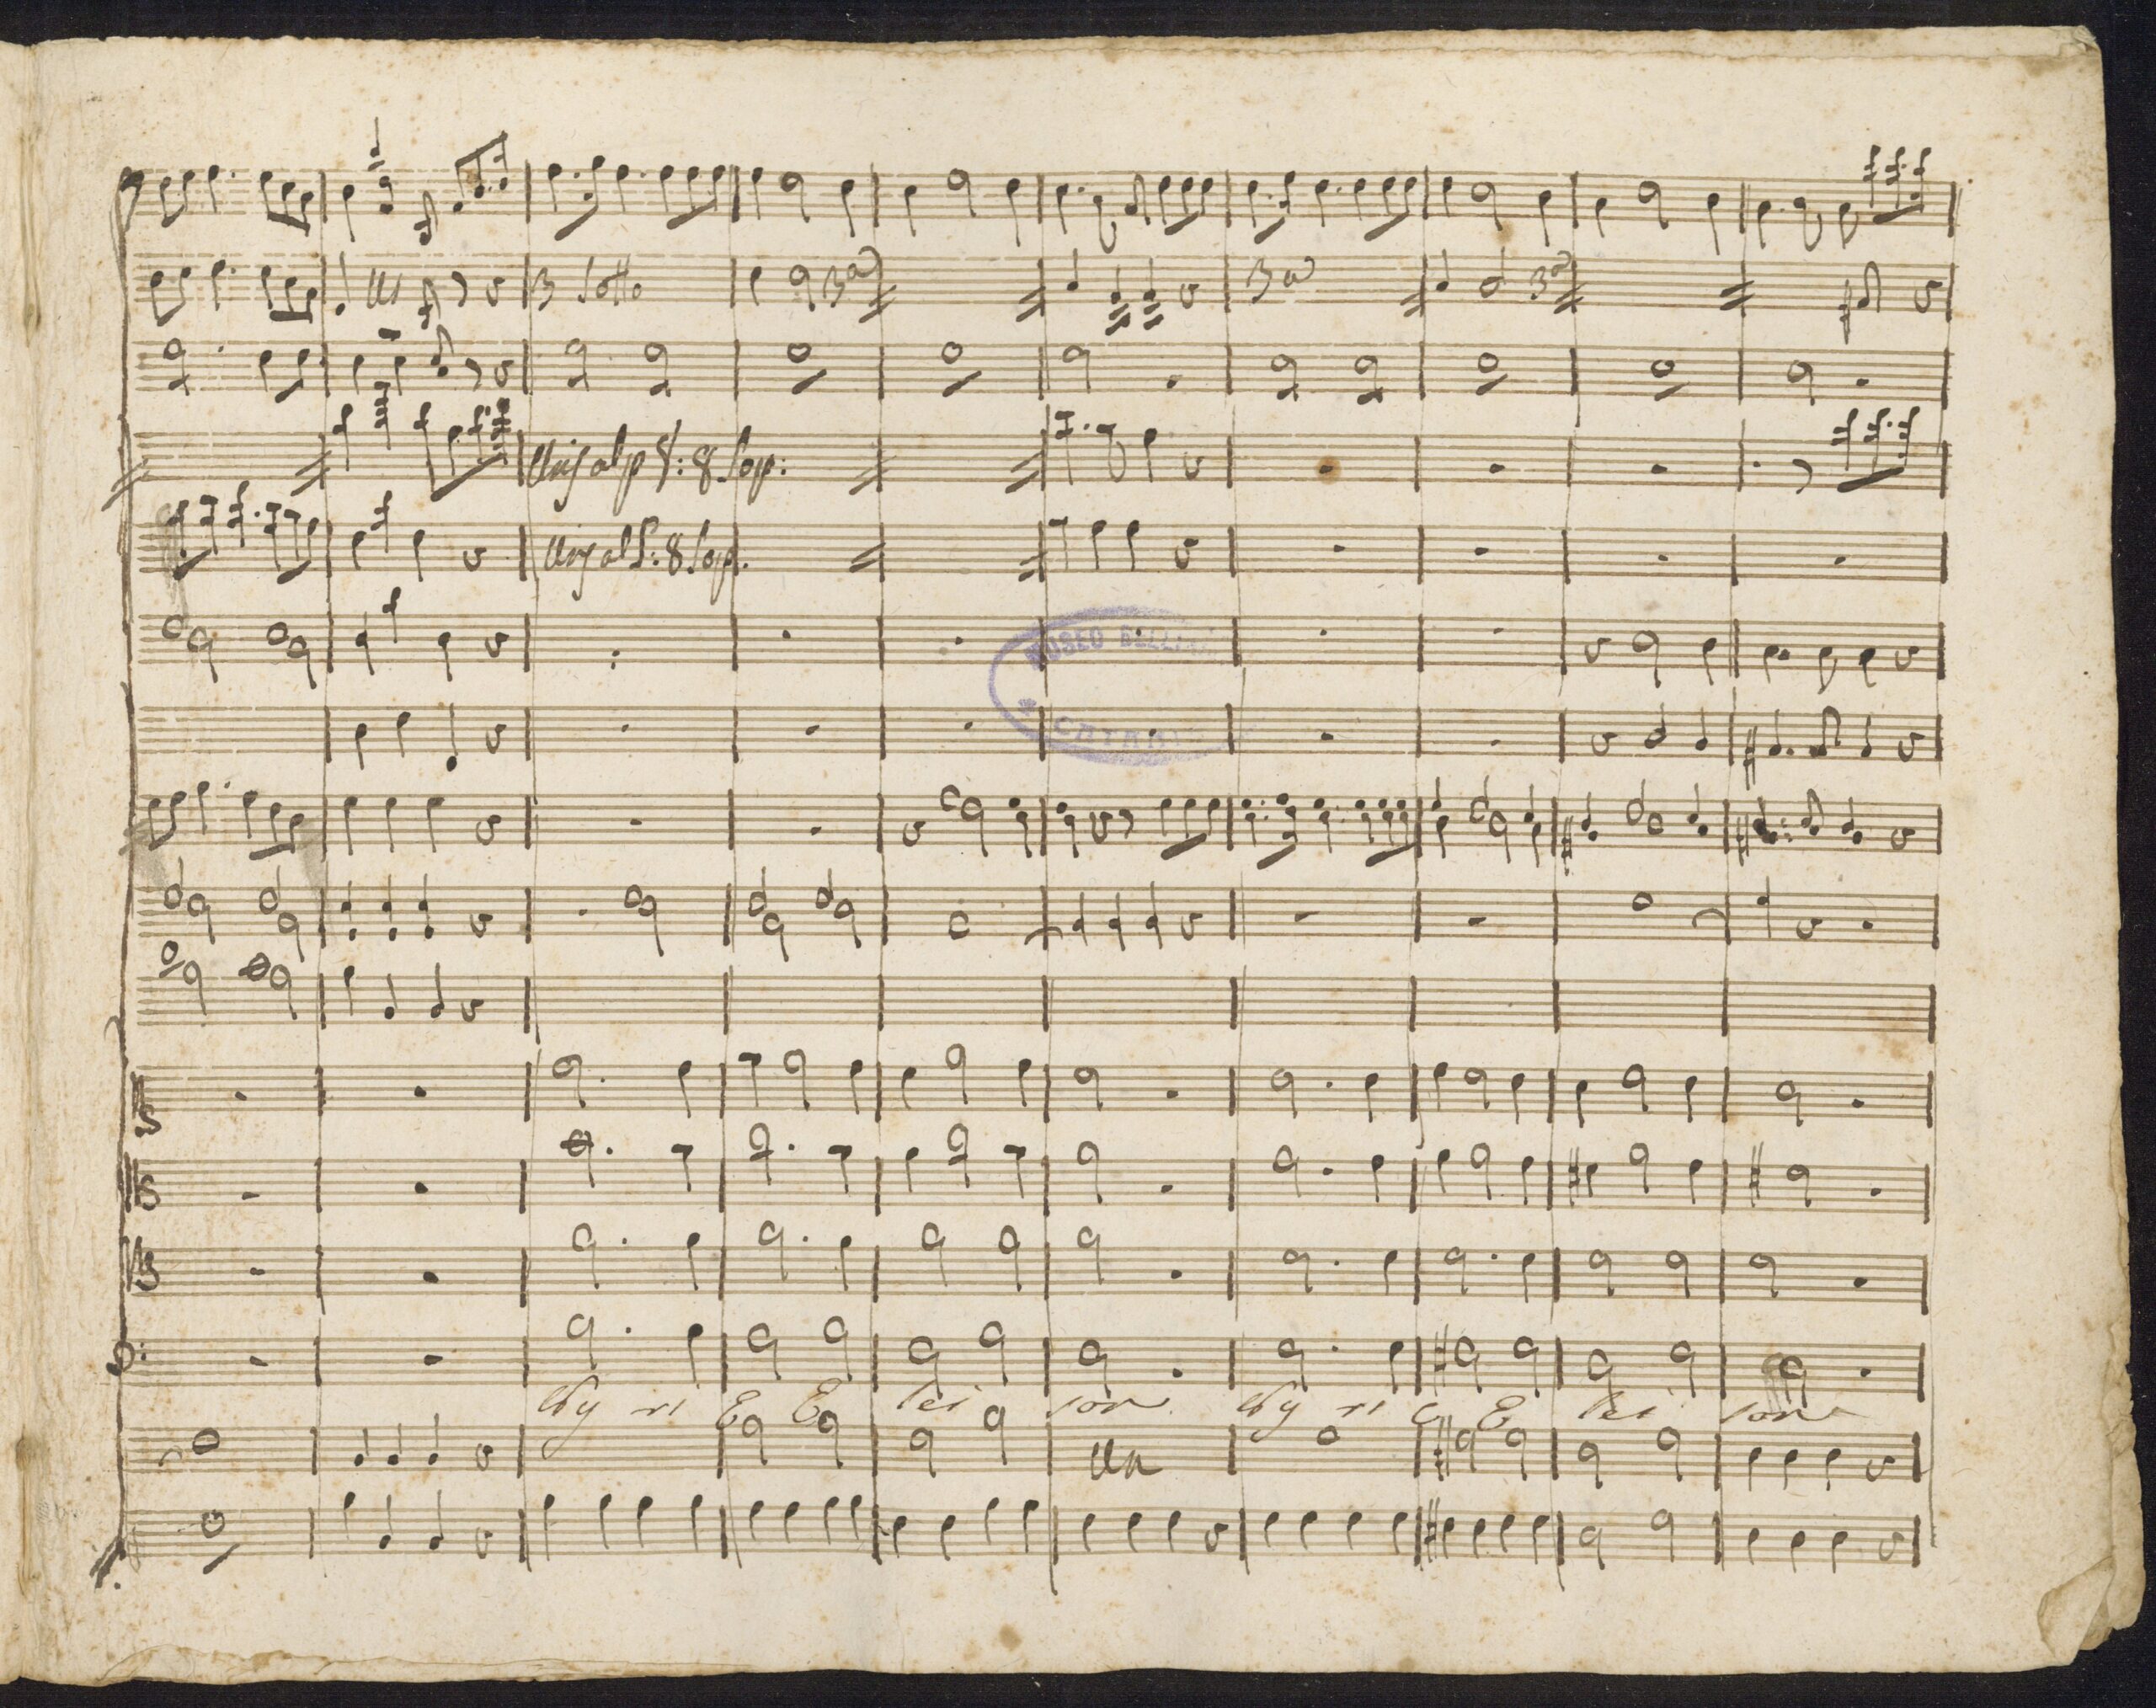 Uni
8 sotto
8a
8a
8a
Unis al p V: 8 sop:
Unis al V: 8 sop.
MUSEO BELLINI
CATANIA
Ky ri E E lei son Ky ri e E lei son
Un